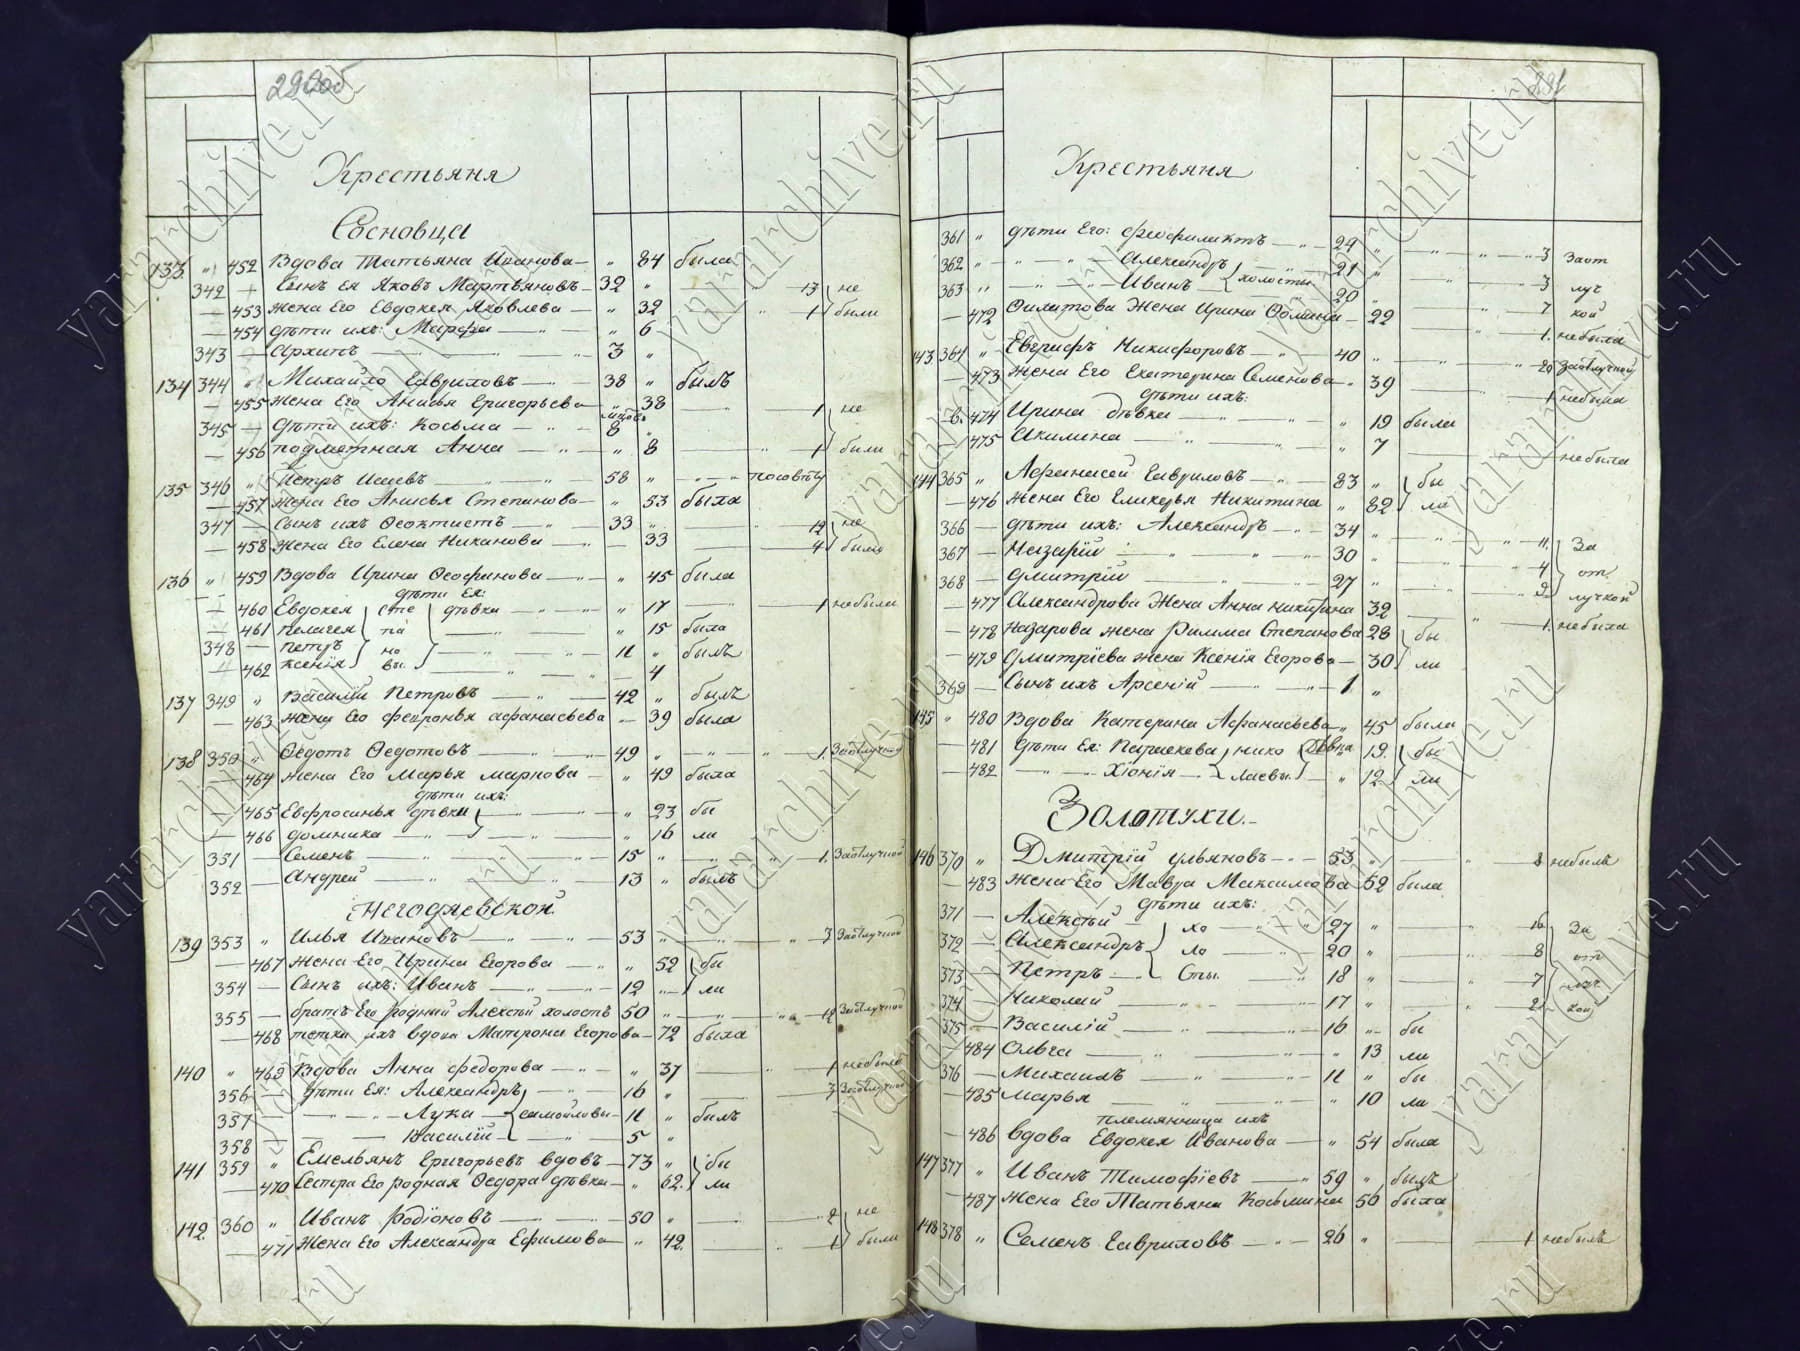 290об
Крестьяня
Сосновца
133 " 452 Вдова Татьяна Иванова — " 84 была
342 — Сынъ ея Яковъ Мартьяновъ — 32 " — 13 не
— 453 жена Его Евдокея Яковлева — " 32 " — 1 были
— 454 дѣти ихъ: Марфа — " — " 6
343 — Архипъ — " — 3 "
134 344 " Михайло Гавриловъ — 38 " былъ
— 455 жена Его Анисья Григорьева — " 38 — 1 не
345 — дѣти ихъ: Косьма — " — 8 "
— 456 подметная Анна — " — " 8 — 1 были
135 346 " Петръ Исаевъ — " 58 " — посовѣту
— 457 жена Его Анисья Степанова — " 53 была
347 — Сынъ ихъ Ѳеоктистъ — " — 33 " — 12 не
— 458 жена Его Елена Никанова — " — 33 — 4 было
136 " 459 Вдова Ирина Ѳеофинова — " 45 была
дѣти Ея:
— 460 Евдокея Сте дѣвки — " — " 17 — 1 небыли
— 461 пелагея па — " 15 была
348 — петръ но — 11 " былъ
" 462 Ксенія вы. — " — 4
137 349 " Василій Петровъ — " — 42 " былъ
— 463 жена Его Феѵронья афанасьева — 39 была
138 350 " Ѳедотъ Ѳедотовъ — " — 49 " — " 1. Заотлучкой
— 464 жена Его Марья маркова — " 49 была
дѣти ихъ:
— 465 Евфросинья дѣвки — " — " 23 бы
— 466 домника — " — " 16 ли
351 — Семенъ — " — 15 " — 1. Заотлучкой
352 — Андрей — " — 13 " былъ
Негодяевской.
139 353 " Илья Ивановъ — " — 53 " — " 3 Заотлучкой
— 467 жена Его Ирина Егорова — " " 52 бы
354 — Сынъ ихъ: Иванъ — " — 12 " — ли
355 — братъ Его родный Алексѣй холостъ 50 " — 12 Заотлучкой
— 468 тетка ихъ вдова Матрона Егорова — 72 была
140 " 469 Вдова Анна федорова — " — " 37 — 1 небыло
356 — дѣти Ея: Александръ — 16 " — 3 Заотлучкой
357 — " — Лука — самойловы — 11 " былъ
358 — — Василій — " — 5 "
141 359 " Емельянъ Григорьевъ вдовъ — 73 " бы
— 470 Сестра Его родная Ѳедора дѣвка — " 62. ли
142. 360 " Иванъ Родіоновъ — 50 " — 2 не
— 471 Жена Его Александра Ефимова — " 42. — 1 были
291
Крестьяня
361 " дѣти Его: феофилактъ — " — 24 " — " — 3 Заот
362 " — " — Александръ холосты — 21 " — 3 луч
363 " — " — Иванъ — 20 " — 7 кой
— 472 Жена Ирина — 22 — 1. небыла
143 364 " Евграфъ Никифоровъ — " — 40 " — " 20 Заотлучкой
— 473 жена Его Екатерина Семенова — " 39 — 1 небыла
дѣти ихъ:
474 Ирина дѣвка — " — " 19 была
— 475 Акилина — " — " 7 небыла
144 365 " Афанасей Гавриловъ — " — 83 " бы
— 476 жена Его Гликерья Никитина " 82 ла
366 — дѣти ихъ: Александръ — " — 34 " — " 11. За
367 — Назарій — " — 30 " — " 4 от
368 — Дмитрій — " — 27 " — 2. лучкой
— 477 Александрова Жена Анна никитина 32 — 1. небыла
— 478 Назарова жена Римма Степанова 28 бы
— 479 Дмитріева жена Ксенія Егорова — 30 ли
369 — Сынъ ихъ Арсеній — " — 1 "
145 " 480 Вдова Катерина Афанасьева — " 45 была
— 481 дѣти Ея: Параскева нико дѣвка 19. бы
— 482 — " — Хіонія — лаевы. — " 12 ли
Золотухи.
146 370 " Дмитрій ульяновъ — " — 53 " — " 8 небылъ
— 483 жена Его Мавра Максимова — 52 была
дѣти ихъ:
371 — Алексѣй — хо — " — 27 " — 16 За
372 — Александръ ло — " — 20 " — 8 от
373 — Петръ — сты. — " — 18 " — 7 луч
374 — Николай — " — 17 " — 2 кой
375 — Василій — " — 16 " бы
— 484 Ольга — " — " 13 ли
376 — Михаилъ — " — 11 " бы
— 485 Марья — " — " 10 ли
племянница ихъ
— 486 вдова Евдокея Иванова — " 54 была
147 377 " Иванъ Тимофіевъ — 59 " былъ
— 487 жена Его Татьяна Косьмина 50 была
148 378 " Семенъ Гавриловъ — " — 26 " — 1 небылъ
yararchive.ru